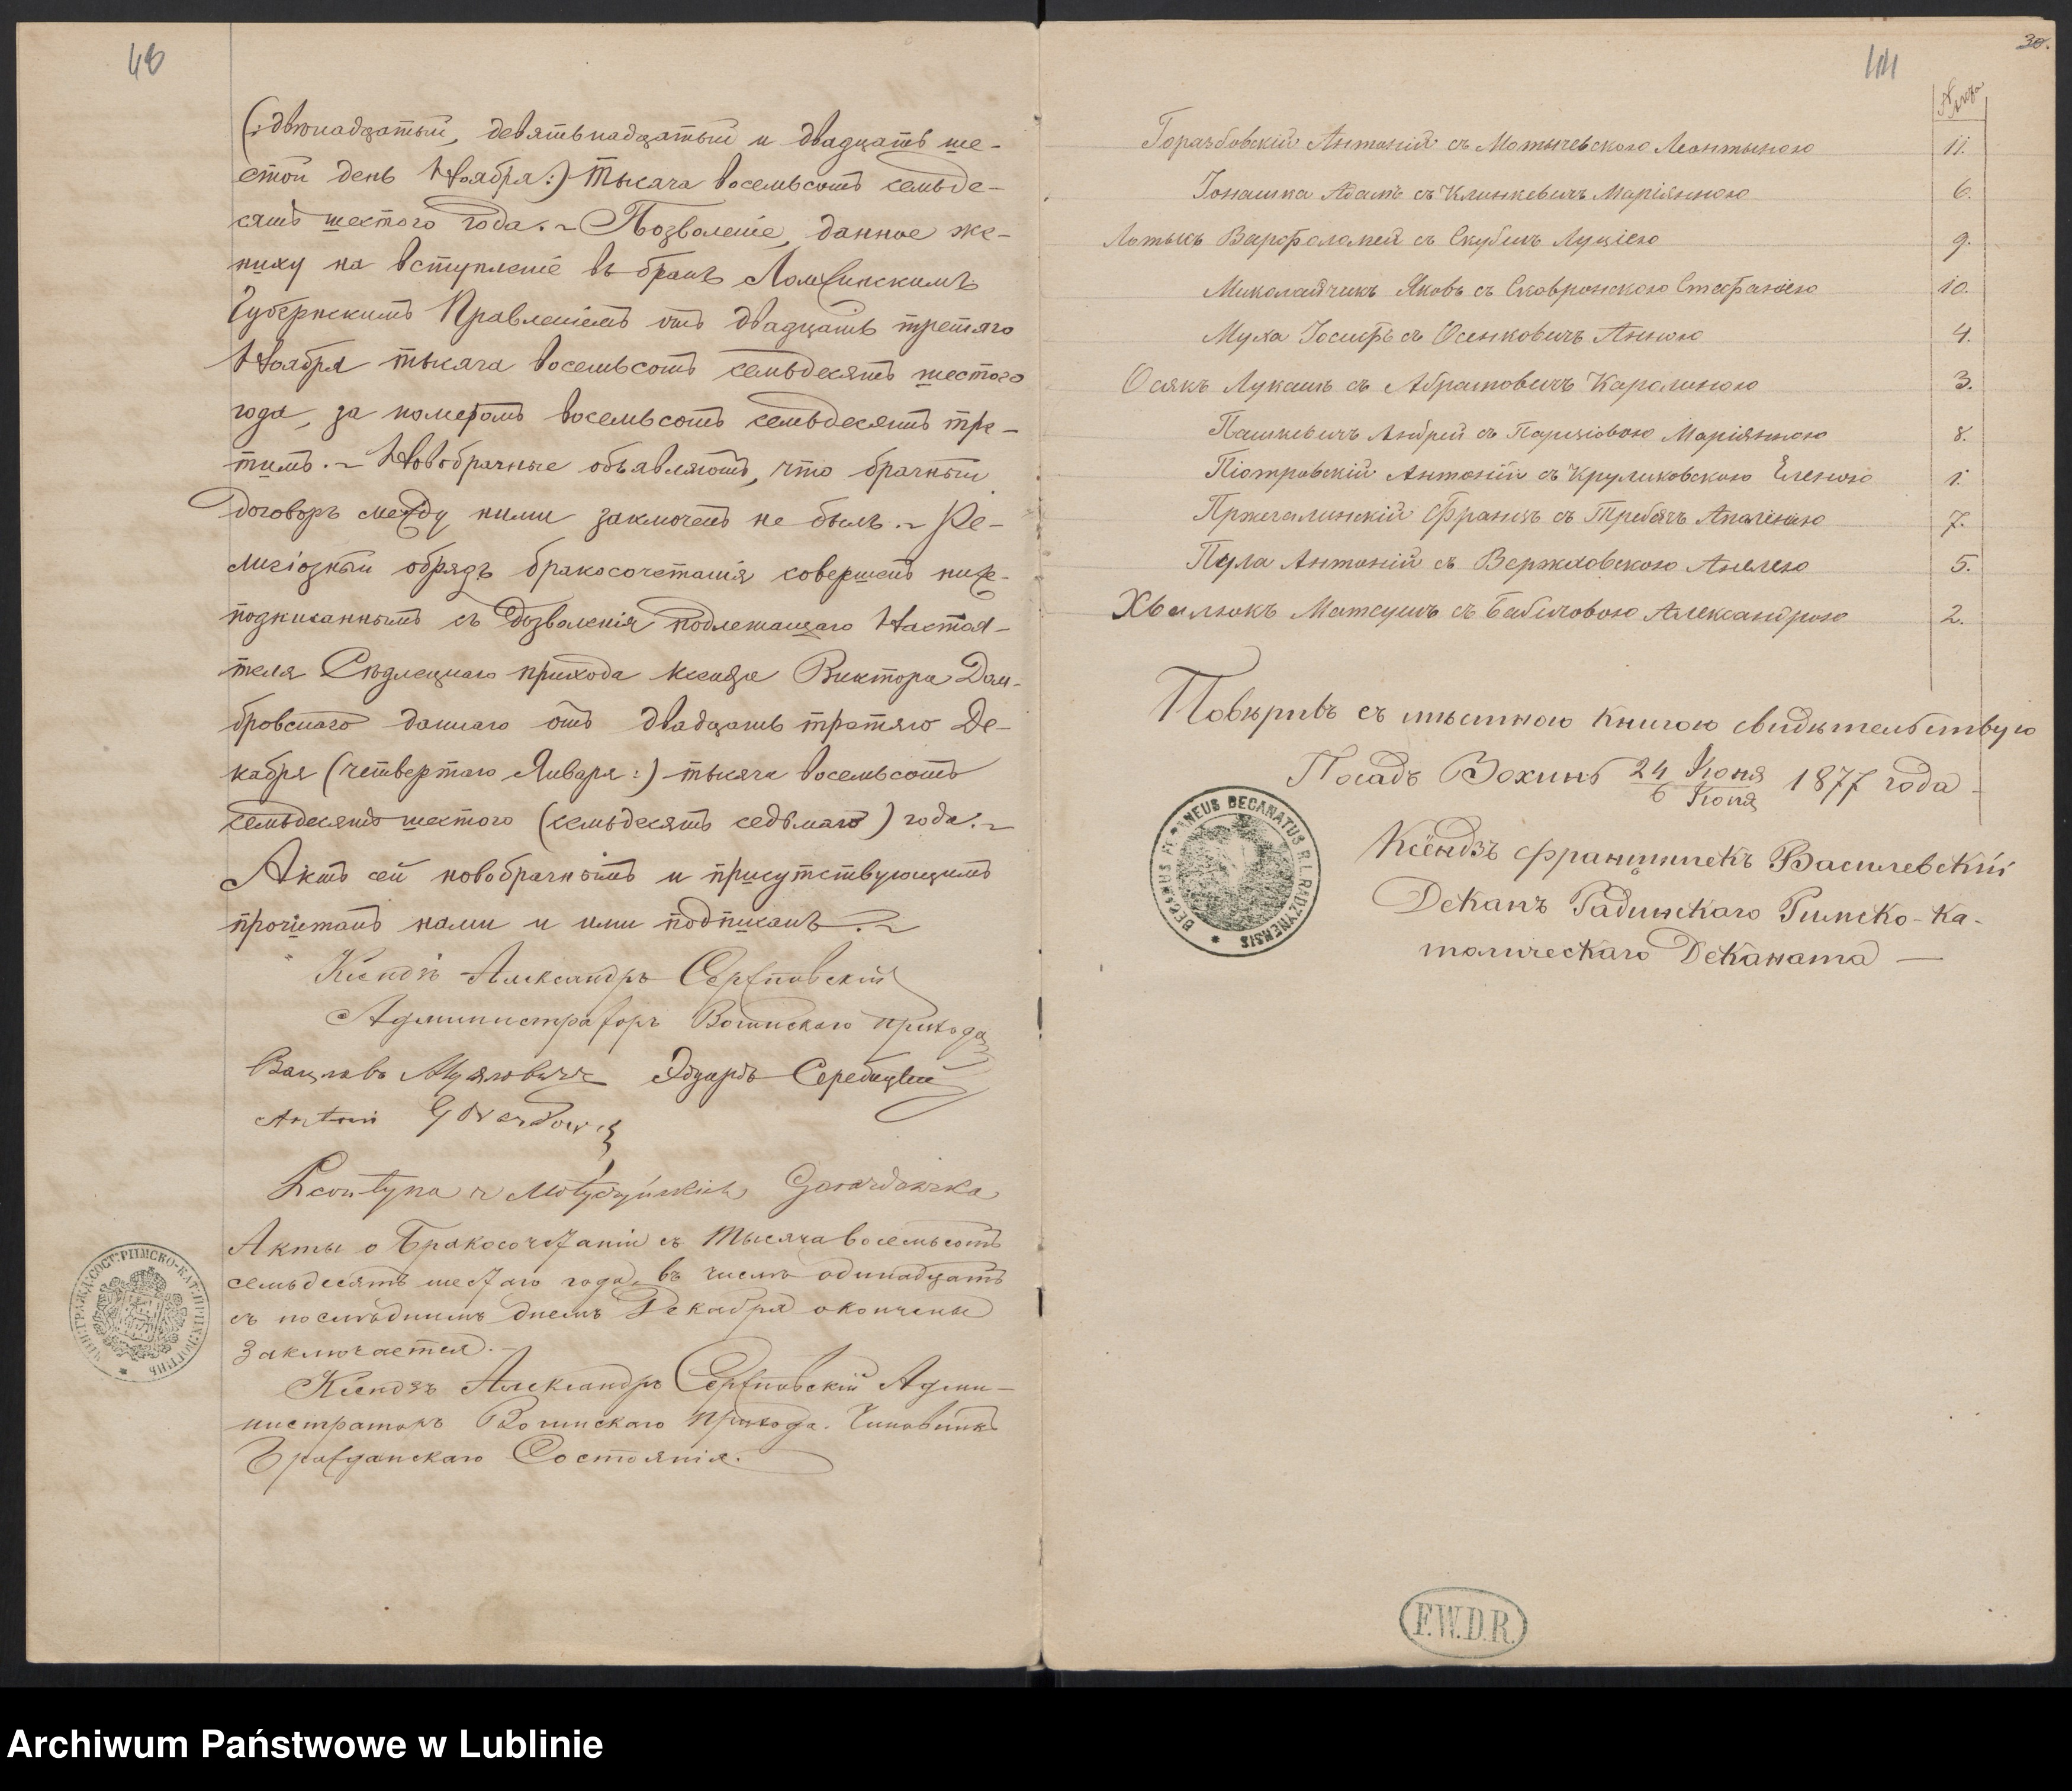 46
(:двюнадцатый, девятьнадцатый и двадцать ше-
стой день Ноября:) тысяча восемьсотъ семьде-
сятъ шестого года.~ Позволеніе, данное же-
ниху на вступленіе въ бракъ Ломжинскимъ
Губернскимъ Правленіемъ отъ двадцать третяго
Ноября тысяча восемьсотъ семьдесятъ шестого
года, за номеромъ восемьсотъ семьдесятъ тре-
тимъ.~ Новобрачные объявляютъ, что брачный
договоръ между ними заключенъ не былъ.~ Ре-
лигіозный обрядъ бракосочетанія совершенъ ниже-
подписаннымъ съ дозволенія подлежащаго Настоя-
теля Сѣдлецкаго прихода ксендза Виктора Дом-
бровскаго даннаго отъ двадцать третяго Де-
кабря (четвертаго Января:) тысяча восемьсотъ
семьдесятъ шестого (семьдесятъ седьмаго) года.~
Актъ сей новобрачнымъ и присутствующимъ
прочитанъ нами и ими подписанъ.~
Ксендзъ Александръ
Администраторъ Вогинскаго прихода
Вацлавъ Эдуардъ
Antoni
Leontyna z
Акты о Бракосочетаніи съ тысяча восемьсотъ
семьдесятъ шестаго года, въ числѣ одинадцать
съ послѣднимъ днемъ Декабря окончены
заключается.
Ксендзъ Александръ Адми-
нистраторъ Вогинскаго прихода. Чиновникъ
Гражданскаго Состоянія.
ЧИН. ГРАЖД. СОСТ. РИМСКО-КАТ. ПРИХ.
44
30.
№ акта
Гораздовскій Антоній съ Мотычевскою Леонтыною 11.
Іонашка Адамъ съ Клинкевичъ Маріянною 6.
Лотысъ Варфоломей съ Скубишъ Луціею 9.
Миколайчикъ Яковъ съ Сковронскою Стефаніею 10.
Муха Іосифъ съ Осенковичъ Анною 4.
Осякъ Лукашъ съ Абрамовичъ Каролиною 3.
Пашкевичъ Андрей съ Маріянною 8.
Піотровскій Антоній съ Круликовскою Еленою 1.
Пржегалинскій Францъ съ Требичъ 7.
Пула Антоній съ Вержховскою Анелею 5.
Хвалюкъ Матеушъ съ Бабичовою Александрою 2.
Повѣривъ съ мѣстною книгою свидѣтельствую
Посадъ Вохинъ 24 Іюня / 6 Іюня 1877 года
Ксёндзъ Францишекъ Василевскій
Деканъ Радинскаго Римско-Ка-
толическаго Деканата —
DECANUS FORANEUS DECANATUS R. L. RADZYNENSIS
F.W.D.R.
Archiwum Państwowe w Lublinie